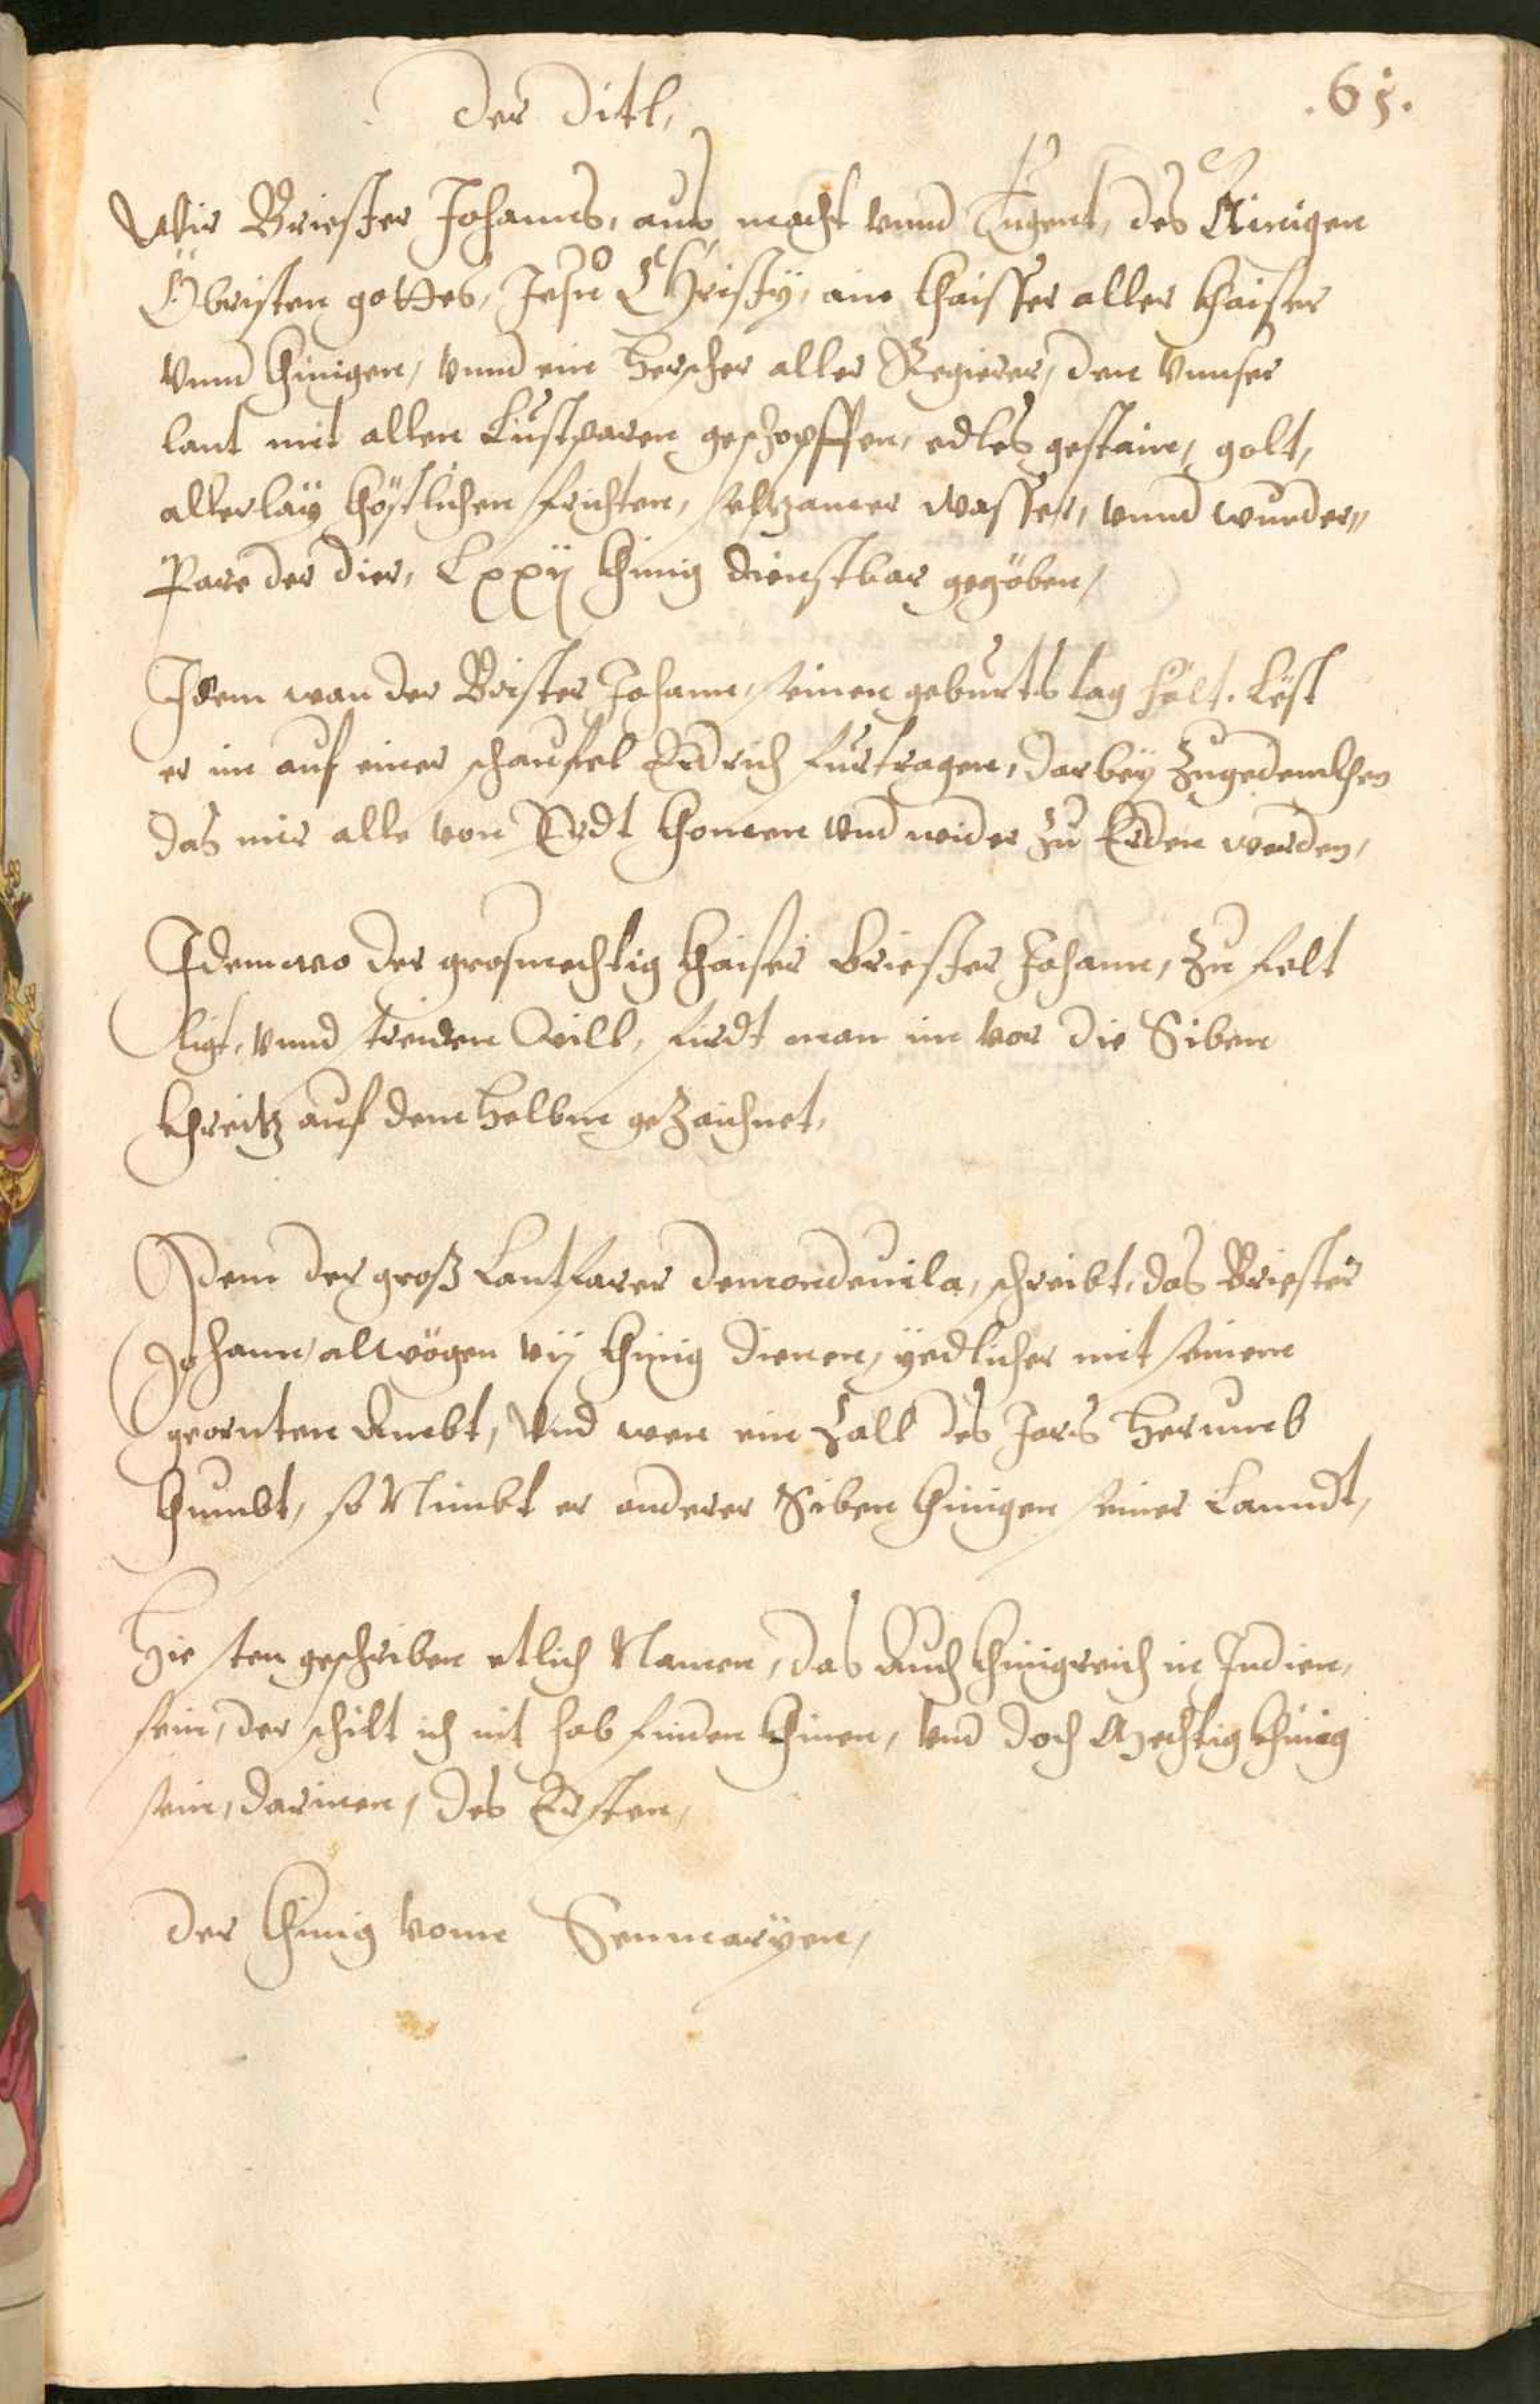 .65.
Der Ditl,
Wir Briester Johanns, aus macht vnnd Tugent, des Ainigen
Öbristen gottes, Jesu Christÿ, ain khaisser aller khaiser
vnnd khinigen, vnnd ein herscher aller Regierer, den vnnser
lant mit allen Lustparen geschopffen, edles gestain, golt,
allerlaÿ khöstlichen frichten, seltzamer wasser, vnnd wunder„
Pare der dier, Lxxij khinig dienstbar gegöben,
Idem wan der Brister Johann, seinen geburts tag helt. Lest
er im auf einer schaufel Erdrich furtragen, darbeÿ zugedenckhen
das mir alle von Erdt khomen vnd wider zu Erden werden,
Idem wo der grosmechtig khaiser briester Johann, zu felt
ligt, vnnd streiden will, fierdt man im vor die Siben
khreitz auf dem helbm gezaichnet,
Idem der groß Lantfarer Demondeuila, schreibt, das Briester
Johann, alwögen vij khinig dienen, ÿedlicher mit seinem
geornten Ambt, vnd wen ein zall des Jars herumb
khumbt, so Nimbt er anderer Siben khinigen seiner Lanndt,
Hie sten geschriben etlich Namen, das auch khinigreich in Indien,
sein, der schilt ich nit hab finden khinen, vnd doch Mechtig khinig
sein, darinen, des Ersten,
Der khinig vonn Senmarÿen,